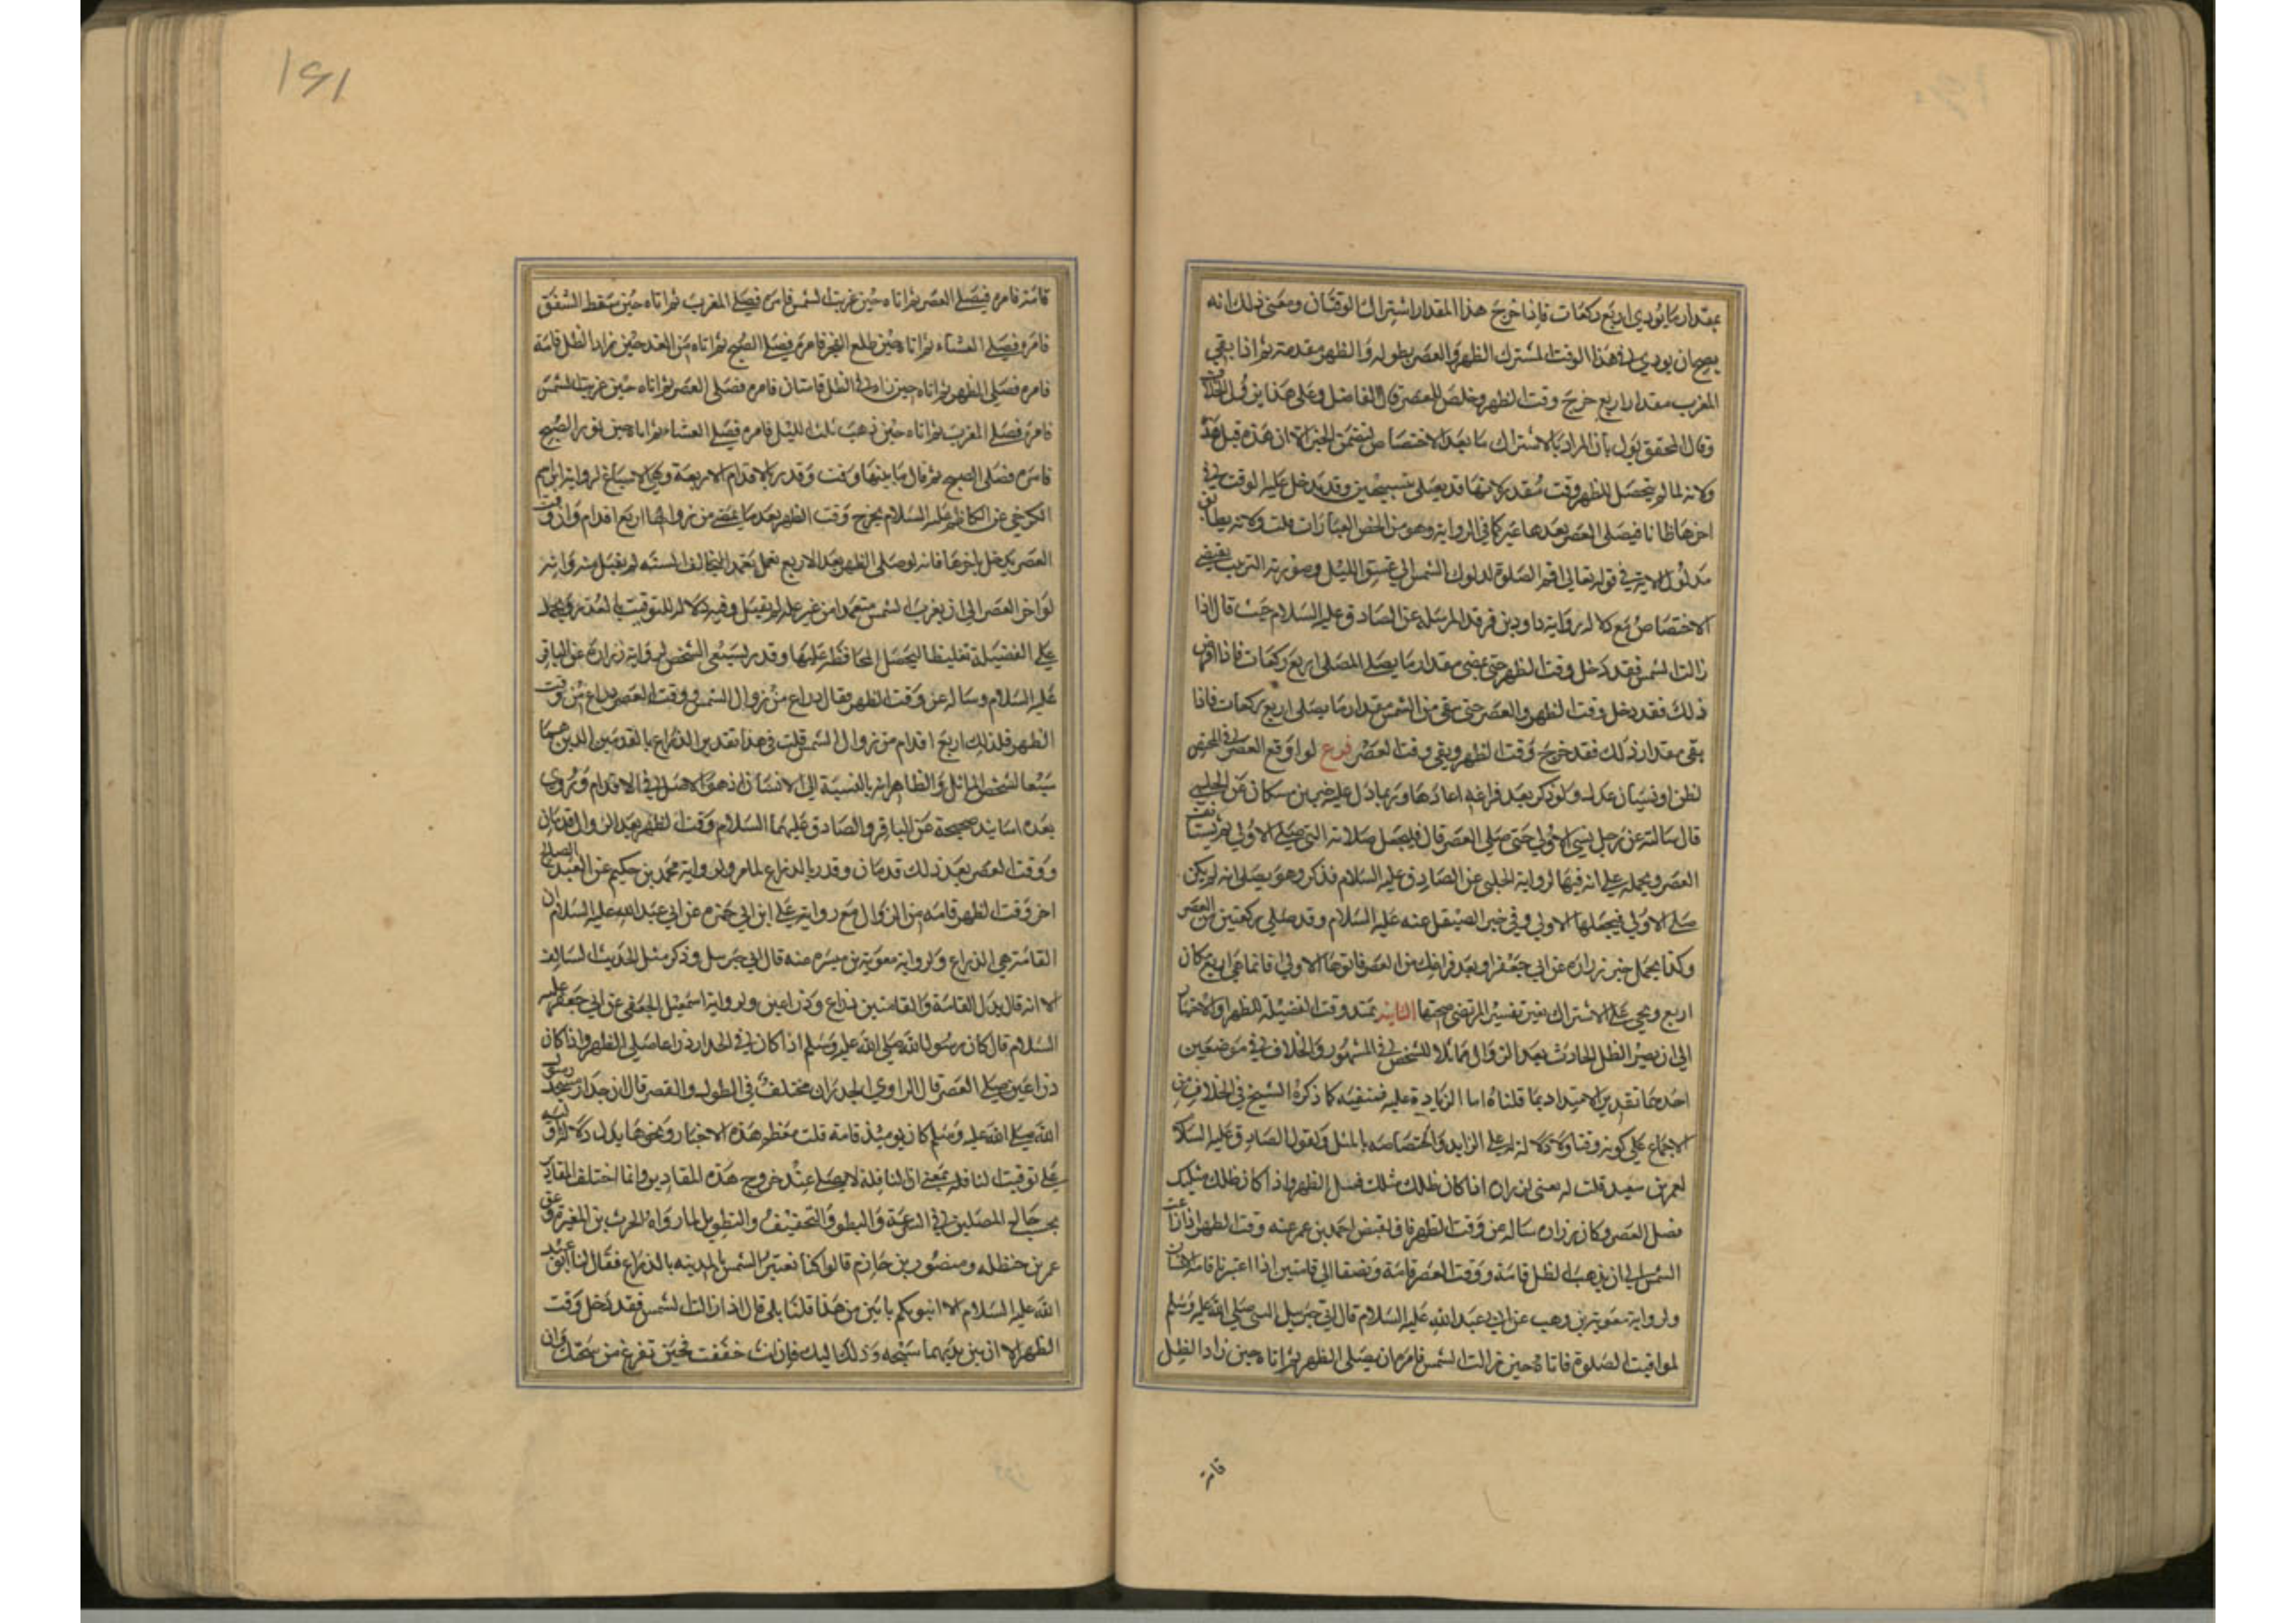 بمقدار ما يودي اربع ركعات فاذا خرج هذا المقدار اشترك الوقتان ومعنى ذلك انه
يصح ان يودي في هذا الوقت المشترك الظهر والعصر بطوله والظهر مقدمة ثم اذا بقي
المغرب مقدار اربع خرج وقت الظهر وخلص للعصر قال الفاضل وعلى هذا يزول الخلاف
وقال المحقق يول بان المراد بالاشتراك ما بعد الاختصاص لتضمن الخبر الا ان هذه قبل هذه
ولانه لما لم يتحصل للظهر وقت مقدر لانها قد يصلى بتسبيحتين وقد يدخل عليه الوقت في
اخرها ظانا فيصلى العصر بعدها عبر كما في الرواية وهو من الخص العبارات قلت ولانه يطابق
مدلول الاية في قوله تعالى اقم الصلوة لدلوك الشمس الى غسق الليل وضرورته الترتيب يقتضي
الاختصاص مع دلالة رواية داود بن فرقد المرسلة عن الصادق عليه السلام حيث قال اذا
زالت الشمس فقد دخل وقت الظهر حتى يمضي مقدار ما يصلى المصلى اربع ركعات فاذا مضى
ذلك فقد دخل وقت الظهر والعصر حتى يبقى من الشمس مقدار ما يصلى اربع ركعات فاذا
بقى مقدار ذلك فقد خرج وقت الظهر وبقى وقت العصر فرع لو اوقع العصر في المختص
لظن او نسيان عدل ولو ذكر بعد فراغه اعادها وربما دل عليه خبر ابن مسكان عن الحلبي
قال سالته عن رجل نسي الاولى حتى صلى العصر قال فليجعل صلاته التي صلى الاولى ثم ليستانف
العصر ويحمله على انه فيها لرواية الحلبي عن الصادق عليه السلام فذكر وهو يصلى انه لم يكن
صلى الاولى فيجعلها الاولى وفي خبر الصيقل عنه عليه السلام وقد صلى ركعتين من العصر
وكذا يحمل خبر زرارة عن ابي جعفر او بعد فراغك من العصر فانوها الاولى فانما هي اربع مكان
اربع ويجي على الاشتراك بغير تفسير المرتضى صحتها الثانية يمتد وقت الفضيلة للظهر والاختيار
الى ان يصير الظل الحادث بعد الزوال مماثلا للشخص في المشهور والخلاف في موضعين
احدهما تقدير الامتداد بما قلناه اما الزيادة عليه فتنفيه كما ذكره الشيخ في الخلاف من
الاجماع على كونه وقتا ولا دلالة على الزايد ولاختصاصه بالمثل ولقول الصادق عليه السلام
لعمر بن سعيد قلت له يعنى لزرارة اذا كان ظلك مثلك فصل الظهر واذا كان ظلك مثليك
فصل العصر وكان زرارة ساله عن وقت الظهر في القيض احمد بن عمر عنه وقت الظهر اذا زاغت
الشمس الى ان يذهب الظل قامة ووقت العصر قامة ونصف الى قامتين اذا اعتبرنا قامة الانسان
ولرواية معوية بن وهب عن ابي عبد الله عليه السلام قال اتى جبرئيل النبي صلى الله عليه وسلم
لمواقيت الصلوة فاتاه حين زالت الشمس فامره ان يصلى الظهر ثم اتاه حين زاد الظل
قامة
١٦١
قامة فامره فيصلي العصر ثم اتاه حين غربت الشمس فامره فيصلي المغرب ثم اتاه حين سقط الشفق
فامره فيصلي العشاء ثم اتاه حين طلع الفجر فامره فيصلي الصبح ثم اتاه من الغد حين زاد الظل قامة
فامره فصلى الظهر ثم اتاه حين زاد في الظل قامتان فامره فصلى العصر ثم اتاه حين غربت الشمس
فامره فصلى المغرب ثم اتاه حين ذهب ثلث الليل فامره فيصلي العشاء ثم اتاه حين نور الصبح
فامره فصلى الصبح ثم قال ما بينهما وقت وقدر بالاقدام الاربعة وهي الاسباغ لرواية ابرهيم
الكرخي عن الكاظم عليه السلام يخرج وقت الظهر بعد ما يمضي من زوالها اربع اقدام وان وقت
العصر يدخل باخرها فانه لو صلى الظهر بعد الاربع فعل يتعمد المخالف السنة لم يقبل منه وانه
لو اخر العصر الى ان يغرب الشمس متعمدا من غير علة لم يقبل وفيه دلالة للتوقيت بالعذر ويحمل
على الفضيلة تغليظا ليحصل المحافظة عليها وقدر لسبعي الشخص لرواية زرارة عن الباقر
عليه السلام وساله عن وقت الظهر فقال ذراع من زوال الشمس ووقت العصر ذراع من وقت
الظهر فلذلك اربع اقدام من زوال الشمس قلت في هذا تقدير الذراع بالقدمين الذين هما
سبعا الشخص المماثل والظاهر انه بالنسبة الى الانسان اذ هو الاصل في الاقدام وروى
بعده اسانيد صحيحة عن الباقر والصادق عليهما السلام وقت الظهر بعد الزوال قدمان
ووقت العصر بعد ذلك قدمان وقدر بالذراع لما مر ولرواية محمد بن حكيم عن العبد الصالح
اخر وقت الظهر قامة من الزوال مع رواية علي ابن ابي حمزه عن ابي عبد الله عليه السلام ان
القامة هي الذراع ولرواية معوية بن ميسره عنه قال اتى جبرئيل وذكر مثل الحديث السالف
الا انه قال بدل القامة والقامتين ذراع وذراعين ولرواية اسمعيل الجعفي عن ابي جعفر عليه
السلام قال كان رسول الله صلى الله عليه وسلم اذا كان في الجدار ذراعا صلى الظهر واذا كان
ذراعين صلى العصر قال الراوي الجدران مختلفة في الطول والقصر قال ان جدار مسجد رسول
الله صلى الله عليه وسلم كان يومئذ قامة قلت معظم هذه الاخبار ونحوها يدل دلالة
على توقيت النافلة بمعنى ان النافلة لا يصلى عند خروج هذه المقادير وانما اختلف المقادير
بحب حال المصلين في السرعة والبطو والتخفيف والتطويل لما رواه الحرث بن المغيرة وعن
عمر بن حنظله ومنصور بن حازم قالوا كنا نعتبر الشمس بالمدينه بالذراع فقال لنا ابو عبد
الله عليه السلام الا انبوكم بابين من هذا قلنا بلى قال اذا زالت الشمس فقد دخل وقت
الظهر الا ان بين يديهما سبحه وذلك اليك فان انت خففت فحين تفرغ من سبحتك وان